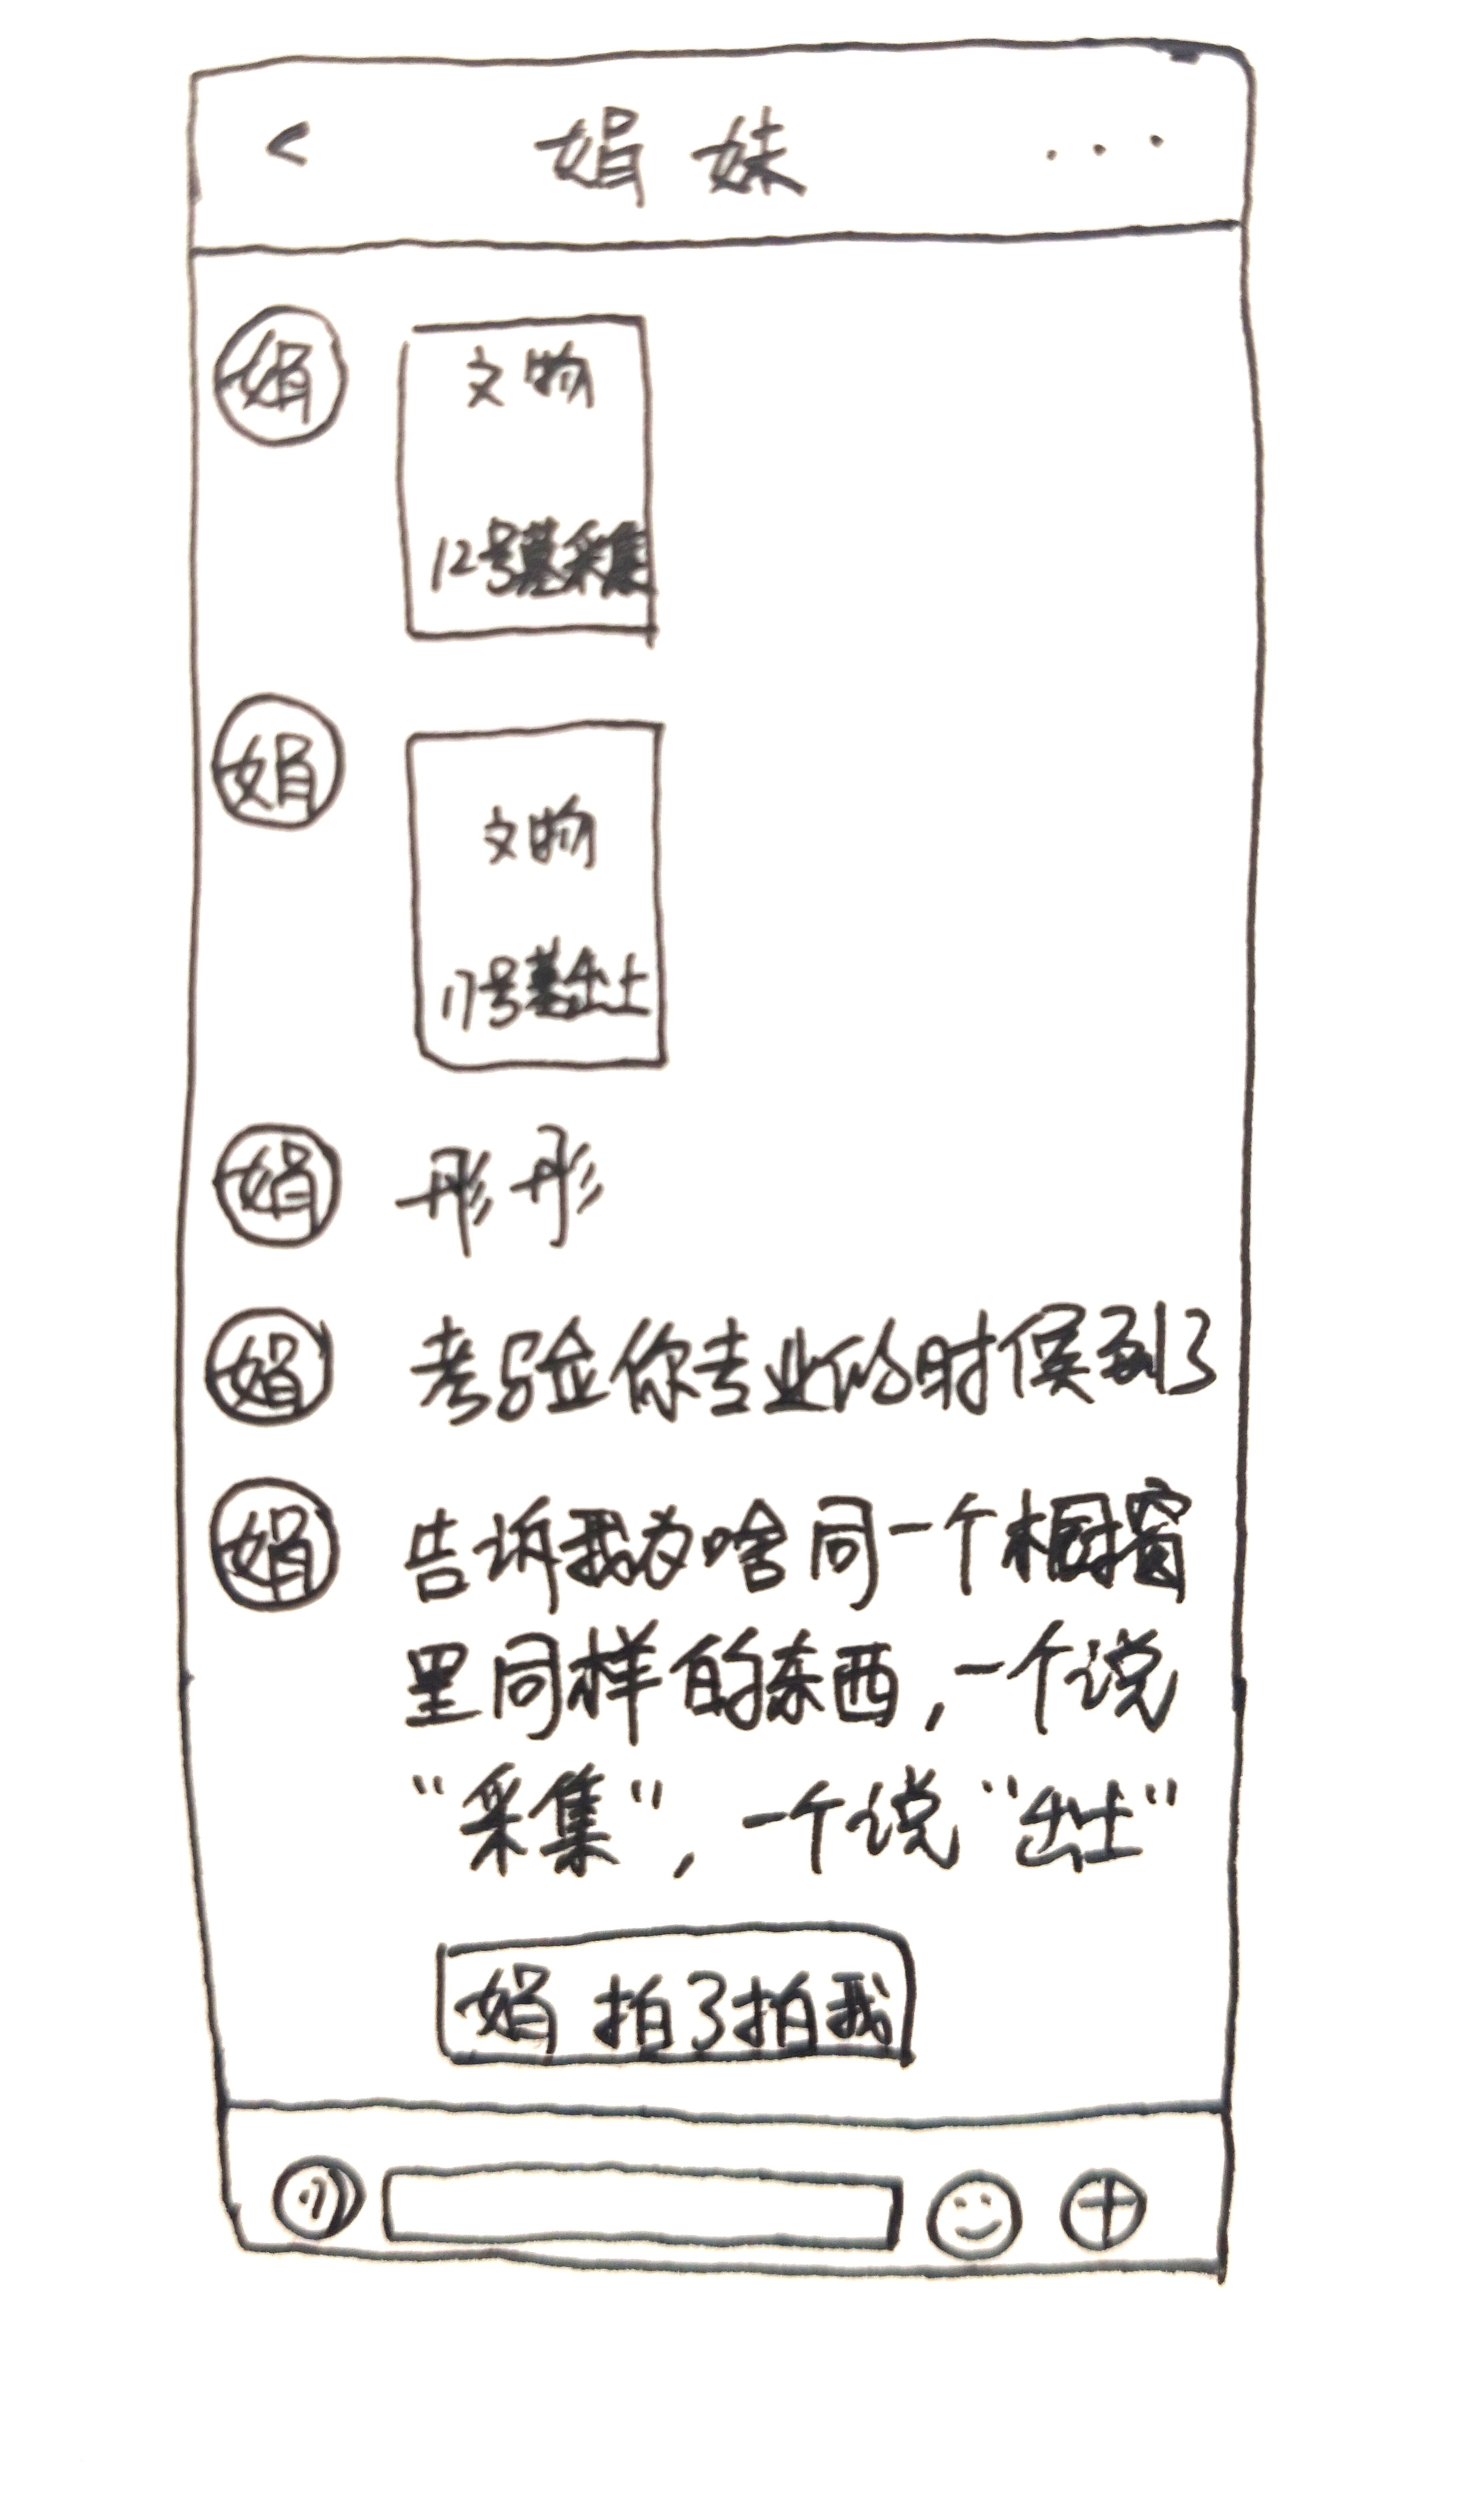 < 娟妹 ...
娟
文物
12号墓采集
娟
文物
17号墓出土
娟 彤彤
娟 考验你专业的时候到了
娟 告诉我为啥同一个橱窗
里同样的东西，一个说
“采集”，一个说“出土”
娟 拍了拍我